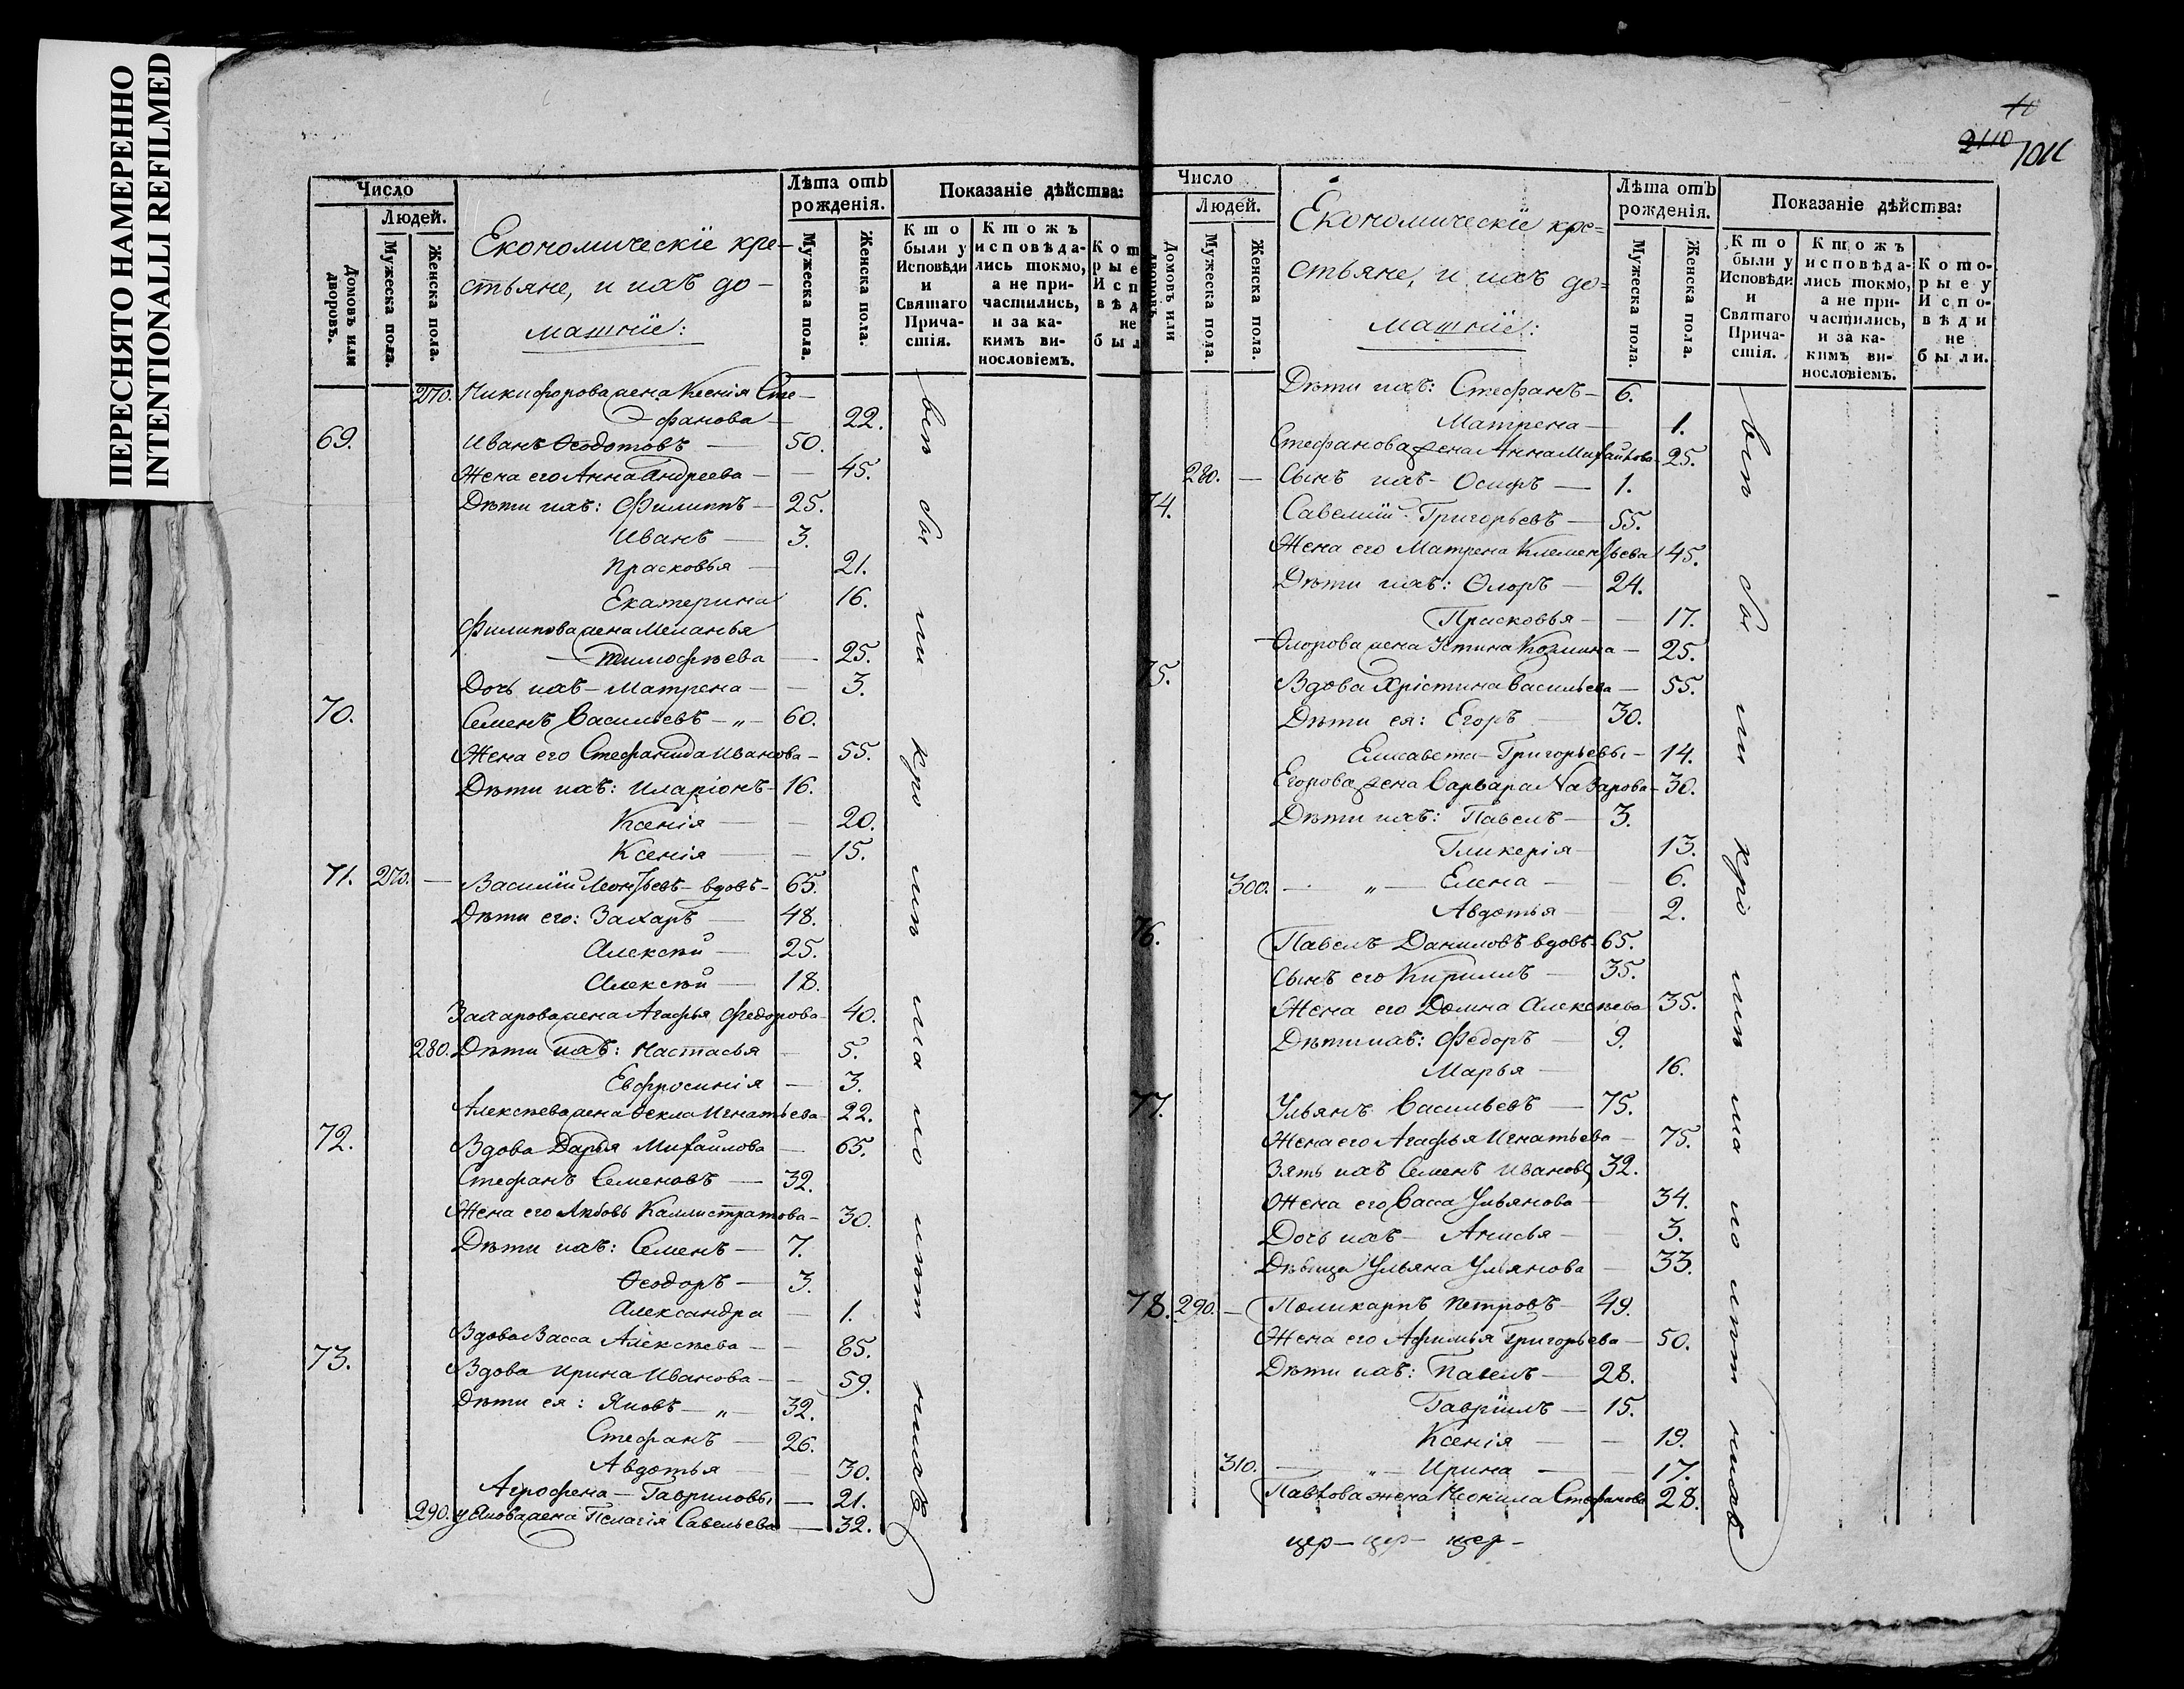 ПЕРЕСНЯТО НАМЕРЕННО
INTENTIONALLI REFILMED
Число
Людей.
Домовъ или дворовъ.
Мужеска пола.
Женска пола.
Економическіе кре-
стьяне, и ихъ до-
машніе:
Лѣта отъ рожденія.
Мужеска пола.
Женска пола.
Показаніе дѣйства:
Кто были у Исповѣди и Святаго Причастія.
Ктожъ исповѣдались токмо, а не причастились, и за какимъ винословіемъ.
270. Никифорова жена Ксенія Сте-
фанова — 22.
69. Иванъ Ѳеодотовъ — 50.
Жена его Анна Андреева — 45.
Дѣти ихъ: Филиппъ — 25.
Иванъ — 3.
Прасковья — 21.
Екатерина 16.
Филипова жена Меланья
Тимофѣева — 25.
Дочь ихъ — Матрена — 3.
70. Семенъ Васильевъ — „ — 60.
Жена его Стефанида Иванова — 55.
Дѣти ихъ: Иларіонъ — 16.
Ксенія — 20.
Ксенія — 15.
71. 270. — Василій Леонтьевъ — вдовъ — 65.
Дѣти его: Захаръ — 48.
Алексѣй — 25.
Алексѣй — 18.
Захарова жена Агафья Федорова — 40.
280. Дѣти ихъ: Настасья — 5.
Евфросинія — 3.
Алексѣева жена Ѳекла Игнатьева — 22.
72. Вдова Дарья Михайлова — 65.
Стефанъ Семеновъ — 32.
Жена его Любовь Каллистратова — 30.
Дѣти ихъ: Семенъ — 7.
Ѳеодоръ — 3.
Александра — 1.
Вдова Васса Алексѣева — 85.
73. Вдова Ирина Иванова — 59.
Дѣти ея: Яковъ — „ — 32.
Стефанъ — 26.
Авдотья — 30.
Агрофена — Гавриловы — 21.
290. Якова жена Пелагія Савельева — 32.
2110
1011
Число
Людей.
Домовъ или дворовъ.
Мужеска пола.
Женска пола.
Економическіе кре=
стьяне, и ихъ до=
машніе:
Лѣта отъ рожденія.
Мужеска пола.
Женска пола.
Показаніе дѣйства:
Кто были у Исповѣди и Святаго Причастія.
Ктожъ исповѣдались токмо, а не причастились, и за какимъ винословіемъ.
Которые у Исповѣди не были.
Дѣти ихъ: Стефанъ — 6.
Матрена — 1.
Стефанова жена Анна Михайлова — 25.
280. — Сынъ ихъ — Осипъ — 1.
74. Савелій Григорьевъ — 55.
Жена его Матрена Клементьева 45.
Дѣти ихъ: Флоръ — 24.
Прасковья — 17.
Флорова жена Устина Козмина — 25.
75. Вдова Христина Васильева — 55.
Дѣти ея: Егоръ — 30.
Елисавета — Григорьевы — 14.
Егорова жена Варвара Назарова — 30.
Дѣти ихъ: Павелъ — 3.
Гликерія — 13.
300. — „ — Елена — 6.
Авдотья — 2.
76. Павелъ Даниловъ вдовъ — 65.
Сынъ его Кирилъ — 35.
Жена его Домна Алексѣева 35.
Дѣти ихъ: Федоръ — 9.
Марья — 16.
77. Ульянъ Васильевъ — 75.
Жена его Агафья Игнатьева — 75.
Зять ихъ Семенъ Ивановъ 32.
Жена его Васса Ульянова — 34.
Дочь ихъ — Анисья — 3.
Дѣвица Ульяна Ульянова — 33.
78. 290. — Поликарпъ Петровъ — 49.
Жена его Афимья Григорьева — 50.
Дѣти ихъ: Павелъ — 28.
Гавріилъ — 15.
Ксенія — 19.
310. — „ — Ирина — 17.
Павлова жена Неонила Стефанова 28.
цер — цер — цер —